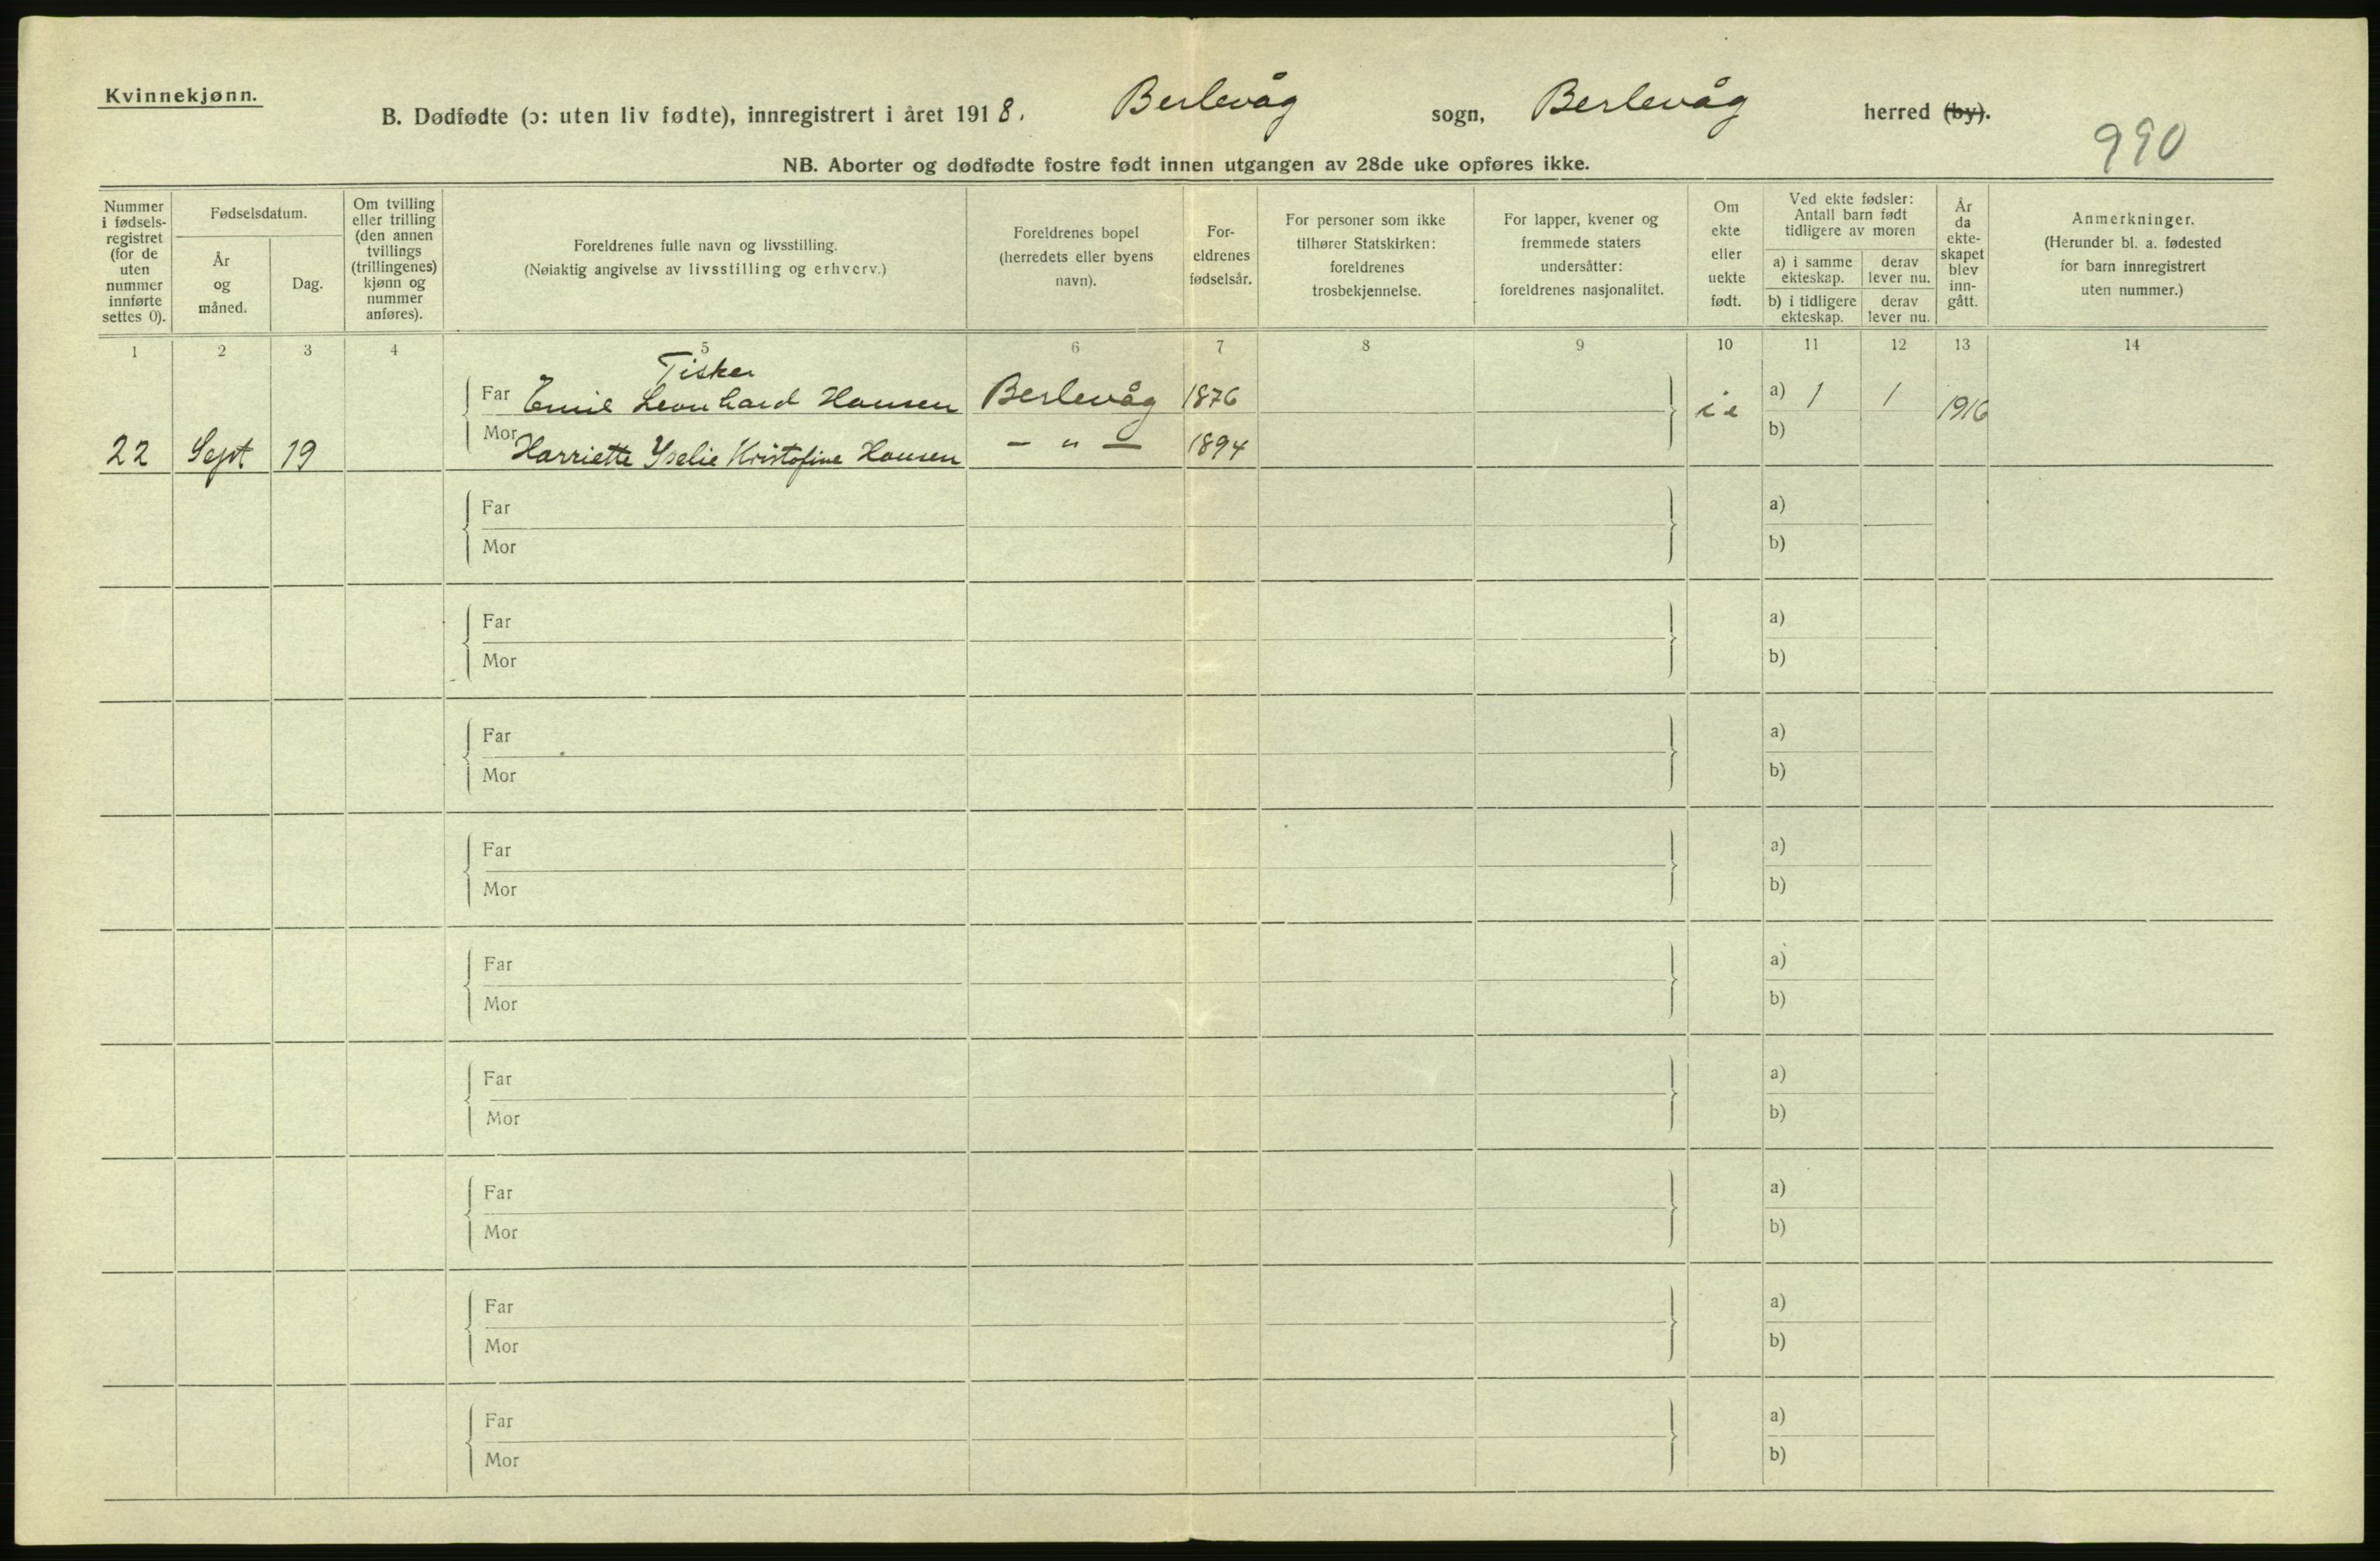 Kvinnekjønn.
B. Dødfødte (ɔ: uten liv fødte), innregistrert i året 1918. Berlevåg sogn, Berlevåg herred (by).
990
NB. Aborter og dødfødte fostre født innen utgangen av 28de uke opføres ikke.
Nummer i fødsels-registret (for de uten nummer innførte settes 0).
Fødselsdatum.
År og måned.
Dag.
Om tvilling eller trilling (den annen tvillings (trillingenes) kjønn og nummer anføres).
Foreldrenes fulle navn og livsstilling.
(Nøiaktig angivelse av livsstilling og erhverv.)
Foreldrenes bopel (herredets eller byens navn).
For-eldrenes fødselsår.
For personer som ikke tilhører Statskirken: foreldrenes trosbekjennelse.
For lapper, kvener og fremmede staters undersåtter: foreldrenes nasjonalitet.
Om ekte eller uekte født.
Ved ekte fødsler: Antall barn født tidligere av moren
a) i samme ekteskap.
derav lever nu.
b) i tidligere ekteskap.
derav lever nu.
År da ekte-skapet blev inn-gått.
Anmerkninger.
(Herunder bl. a. fødested for barn innregistrert uten nummer.)
1 2 3 4 5 6 7 8 9 10 11 12 13 14
Fisker
Far Emil Leonhard Hansen Berlevåg 1876 a) 1 1 1916
22 Sept 19 Mor Harriette Kristofine Hansen — " — 1894 b)
Far a)
Mor b)
Far a)
Mor b)
Far a)
Mor b)
Far a)
Mor b)
Far a)
Mor b)
Far a)
Mor b)
Far a)
Mor b)
Far a)
Mor b)
Far a)
Mor b)